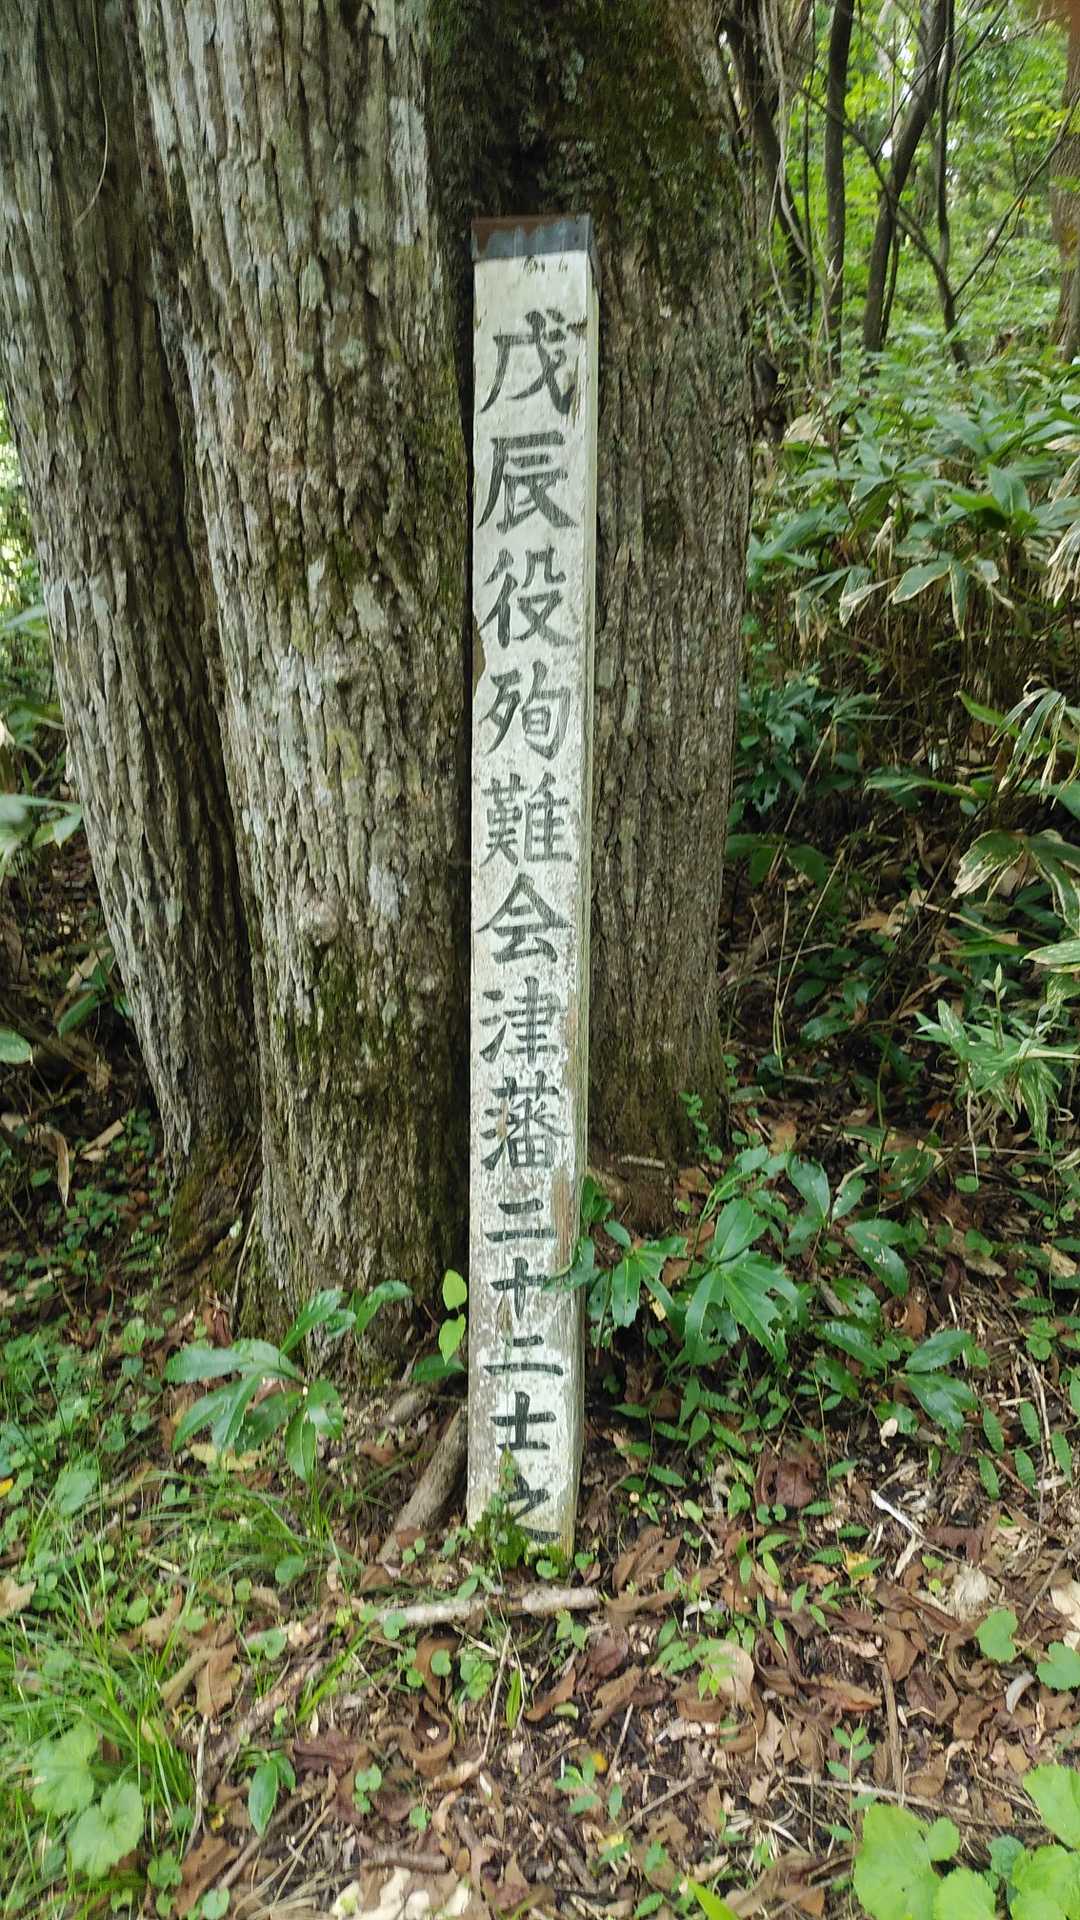 戊辰役殉難会津藩二十二士之